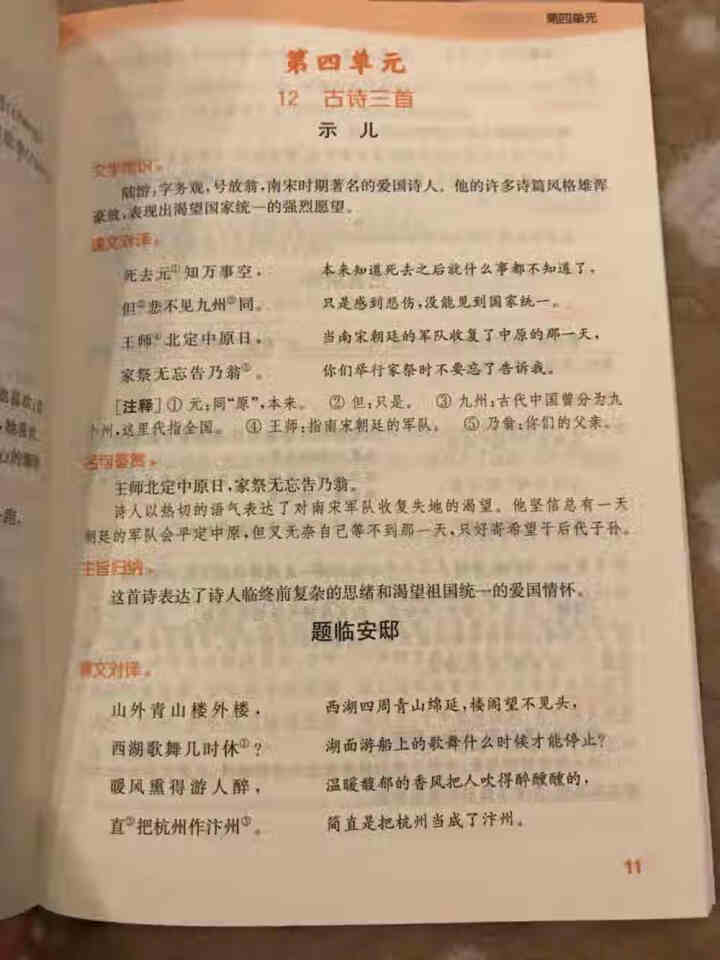 第四单元
第四单元
12 古诗三首
示 儿
文学常识
陆游,字务观,号放翁,南宋时期著名的爱国诗人。他的许多诗篇风格雄浑
豪放,表现出渴望国家统一的强烈愿望。
课文对译
死去元①知万事空, 本来知道死去之后就什么事都不知道了,
但②悲不见九州③同。 只是感到悲伤,没能见到国家统一。
王师④北定中原日, 当南宋朝廷的军队收复了中原的那一天,
家祭无忘告乃翁⑤。 你们举行家祭时不要忘了告诉我。
[注释] ① 元:同“原”,本来。 ② 但:只是。 ③ 九州:古代中国曾分为九
个州,这里代指全国。 ④ 王师:指南宋朝廷的军队。 ⑤ 乃翁:你们的父亲。
名句鉴赏
王师北定中原日,家祭无忘告乃翁。
诗人以热切的语气表达了对南宋军队收复失地的渴望。他坚信总有一天
朝廷的军队会平定中原,但又无奈自己等不到那一天,只好寄希望于后代子孙。
主旨归纳
这首诗表达了诗人临终前复杂的思绪和渴望祖国统一的爱国情怀。
题临安邸
课文对译
山外青山楼外楼, 西湖四周青山绵延,楼阁望不见头,
西湖歌舞几时休①? 湖面游船上的歌舞什么时候才能停止?
暖风熏得游人醉, 温暖馥郁的香风把人吹得醉醺醺的,
直②把杭州作汴州③。 简直是把杭州当成了汴州。
11